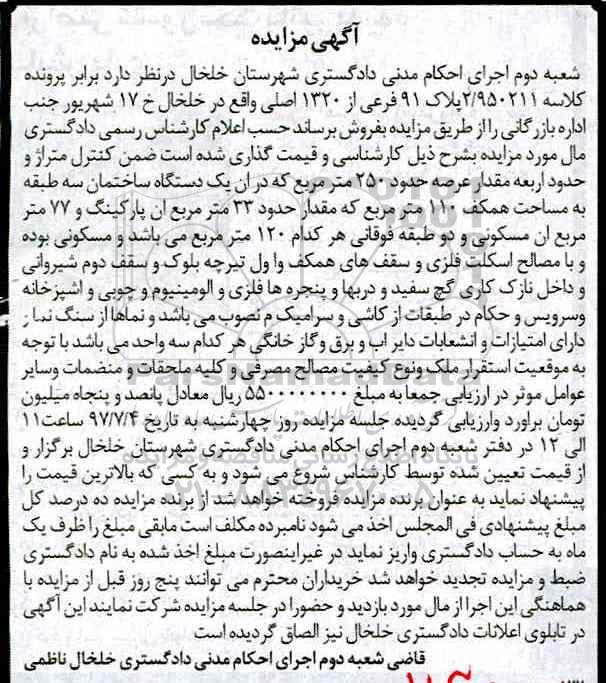 آگهی مزایده
شعبه دوم اجرای احکام مدنی دادگستری شهرستان خلخال درنظر دارد برابر پرونده
کلاسه ۲/۹۵۰۲۱۱پلاک ۹۱ فرعی از ۱۳۲۰ اصلی واقع در خلخال خ ۱۷ شهریور جنب
اداره بازرگانی را از طریق مزایده بفروش برساند حسب اعلام کارشناس رسمی دادگستری
مال مورد مزایده بشرح ذیل کارشناسی و قیمت گذاری شده است ضمن کنترل متراژ و
حدود اربعه مقدار عرصه حدود ۲۵۰ متر مربع که در ان یک دستگاه ساختمان سه طبقه
به مساحت همکف ۱۱۰ متر مربع که مقدار حدود ۳۳ متر مربع ان پارکینگ و ۷۷ متر
مربع ان مسکونی و دو طبقه فوقانی هر کدام ۱۲۰ متر مربع می باشد و مسکونی بوده
و با مصالح اسکلت فلزی و سقف های همکف وا ول تیرچه بلوک و سقف دوم شیروانی
و داخل نازک کاری گچ سفید و دربها و پنجره ها فلزی و الومینیوم و چوبی و اشپزخانه
وسرویس و حکام در طبقات از کاشی و سرامیک م نصوب می باشد و نماها از سنگ نما ز
دارای امتیازات و انشعابات دایر اب و برق وگاز خانگی هر کدام سه واحد می باشد با توجه
به موقعیت استقرار ملک ونوع کیفیت مصالح مصرفی و کلیه ملحقات و منضمات وسایر
عوامل موثر در ارزیابی جمعا به مبلغ ۵۵۰۰۰۰۰۰۰۰ ریال معادل پانصد و پنجاه میلیون
تومان براورد وارزیابی گردیده جلسه مزایده روز چهارشنبه به تاریخ ۹۷/۷/۴ ساعت۱۱
الی ۱۲ در دفتر شعبه دوم اجرای احکام مدنی دادگستری شهرستان خلخال برگزار و
از قیمت تعیین شده توسط کارشناس شروع می شود و به کسی که بالاترین قیمت را
پیشنهاد نماید به عنوان برنده مزایده فروخته خواهد شد از برنده مزایده ده درصد کل
مبلغ پیشنهادی فی المجلس اخذ می شود نامبرده مکلف است مابقی مبلغ را ظرف یک
ماه به حساب دادگستری واریز نماید در غیراینصورت مبلغ اخذ شده به نام دادگستری
ضبط و مزایده تجدید خواهد شد خریداران محترم می توانند پنج روز قبل از مزایده با
هماهنگی این اجرا از مال مورد بازدید و حضورا در جلسه مزایده شرکت نمایند این آگهی
در تابلوی اعلانات دادگستری خلخال نیز الصاق گردیده است
قاضی شعبه دوم اجرای احکام مدنی دادگستری خلخال ناظمی